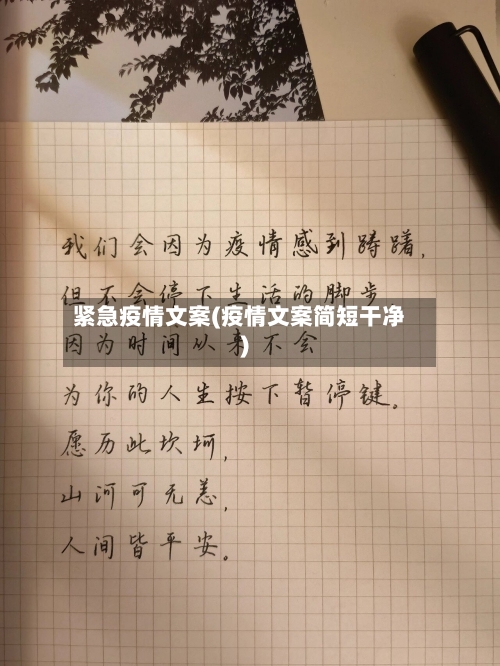 我们会因为疫情感到踌躇,
但不会停下生活的脚步
紧急疫情文案(疫情文案简短干净
)
因为时间从来不会
为你的人生按下暂停键。
愿历此坎坷,
山河可无恙,
人间皆平安。